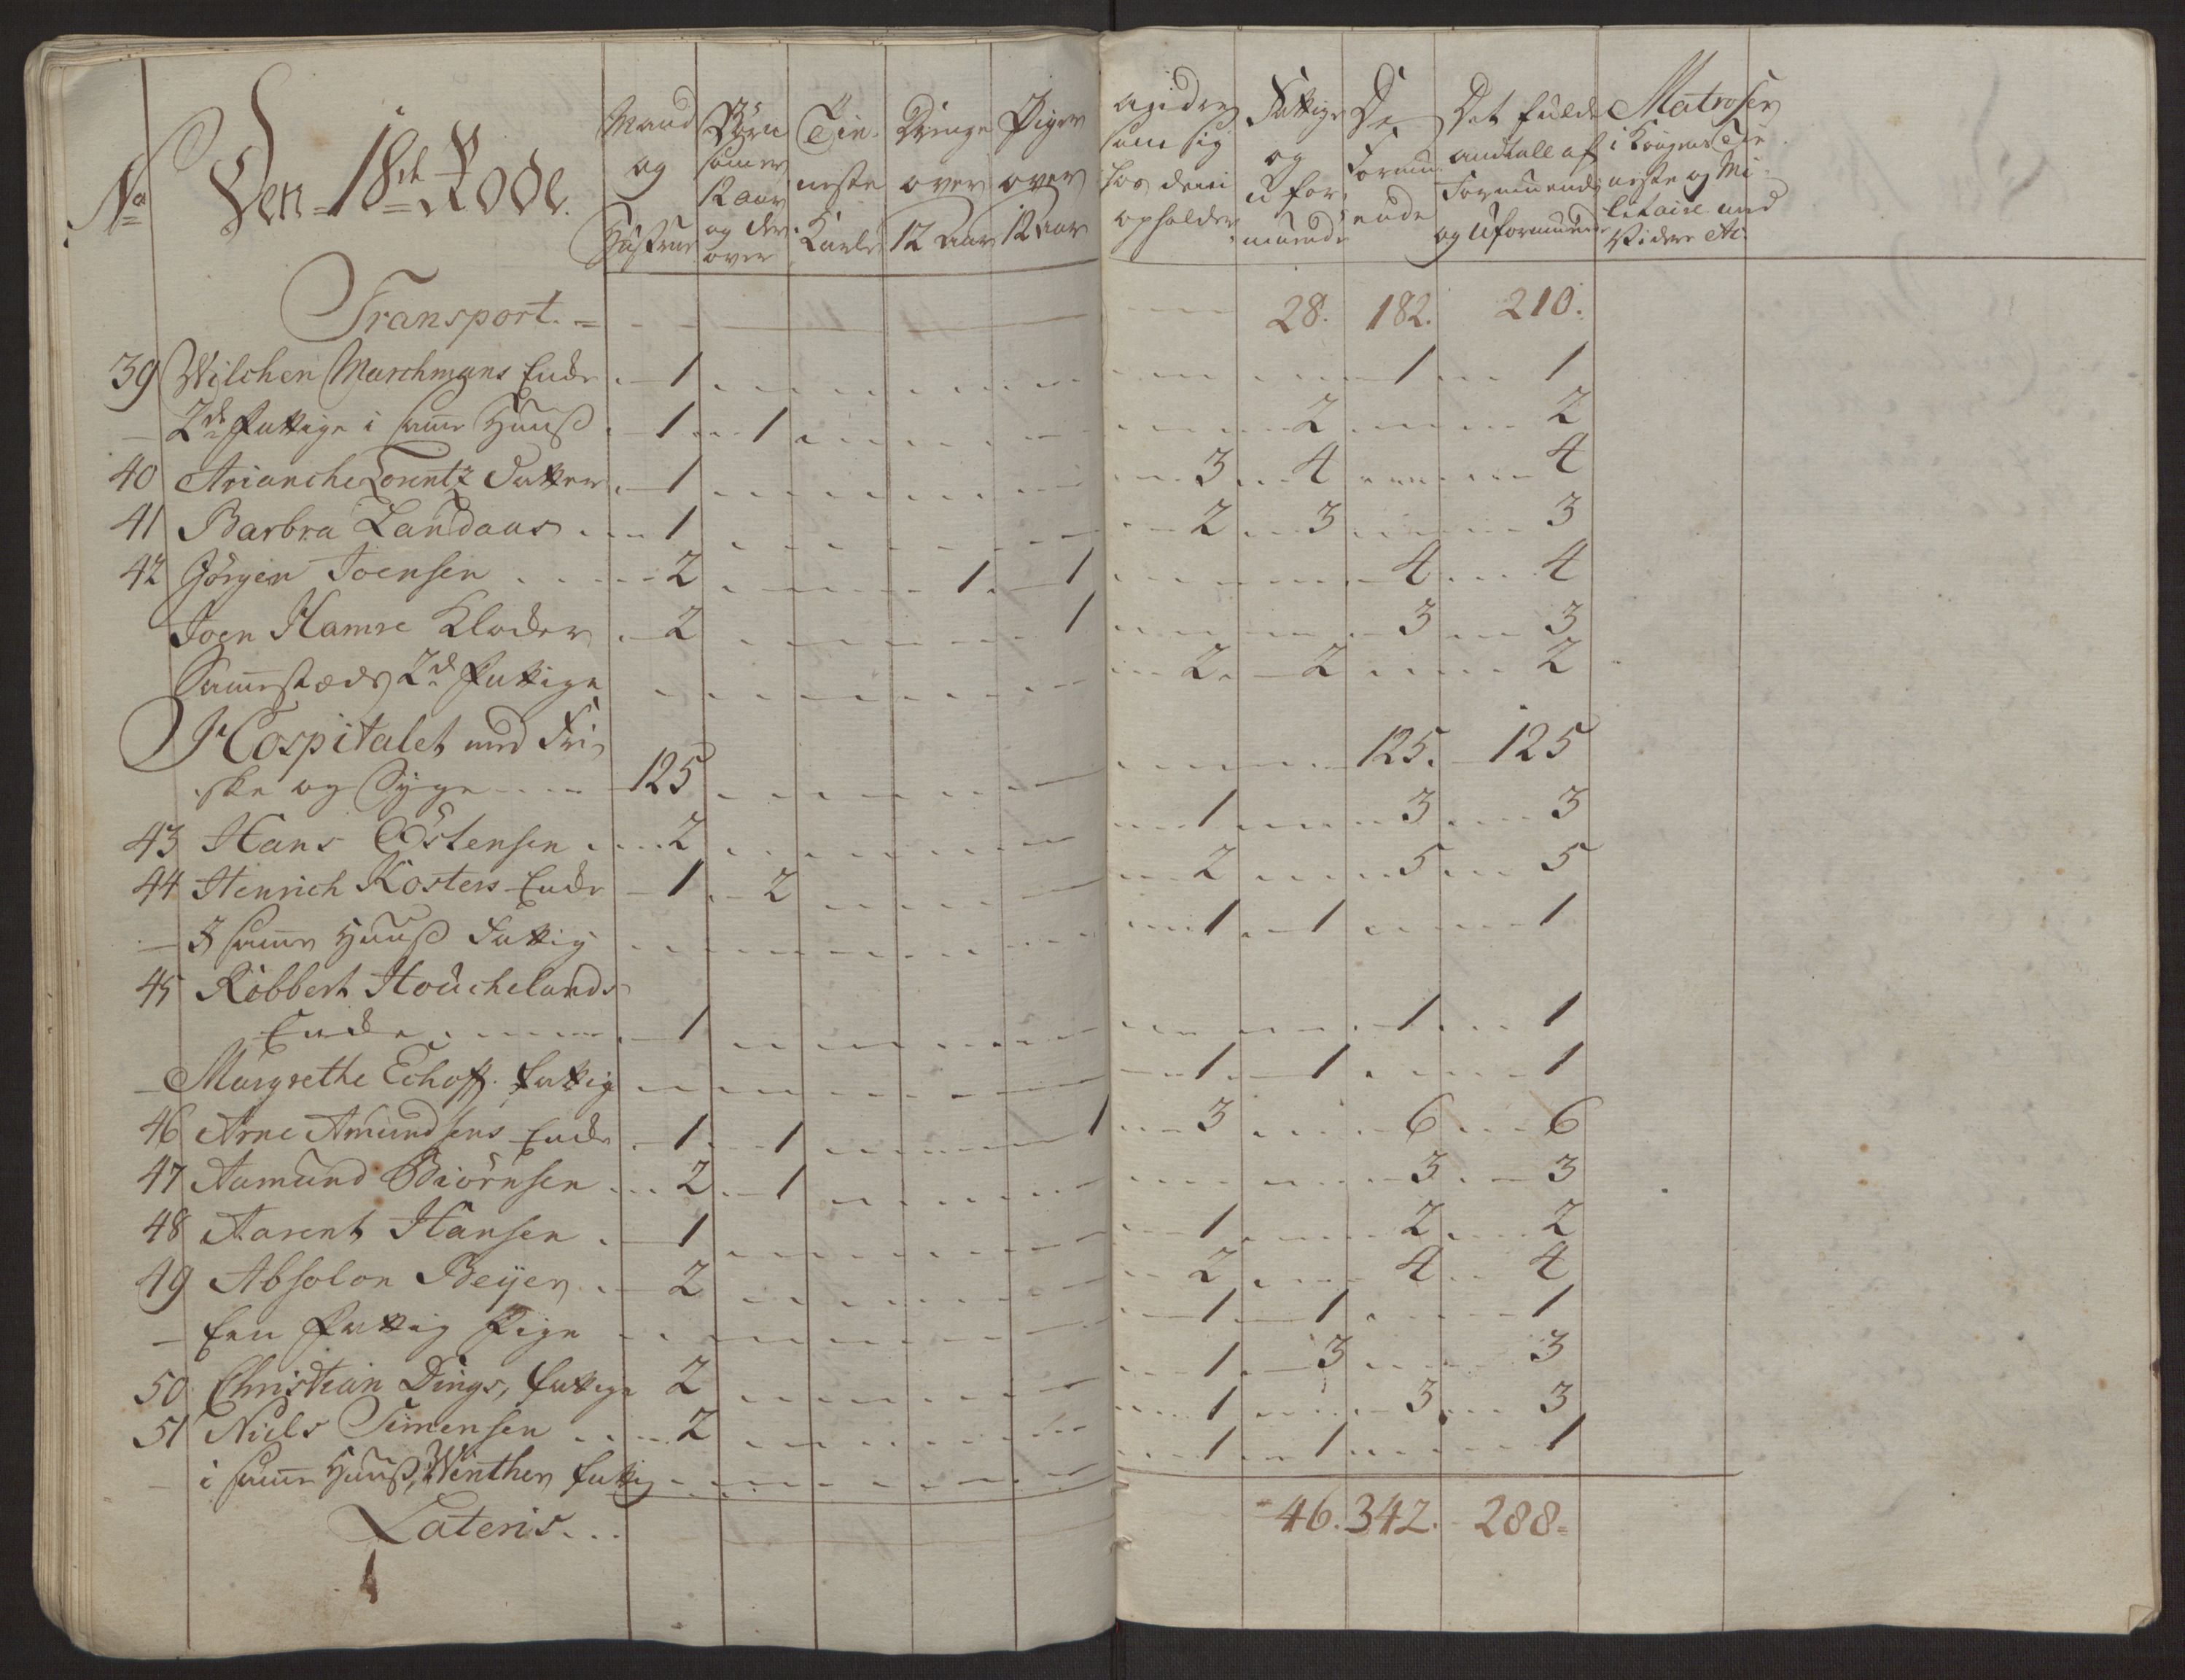 No
Den 18de Rode.
Mand og Hustrue
Börn som er 12 aar og der over
Tieneste Karle
Drenge over 12 Aar
Piger over 12 aar
andre som sig hos dem opholder
Fattige og uformuende
De Formuende
Det fulde andtall af Formuende og Uformuende
Matroser i Kongens Tieneste og Militaire med Videre etc.
Transport. 28. 182. 210.
39 Wilchen Marchmans Enke 1 1 1
2de fattige i samme Huus 1 1 2 2
40 Arianche Lorentz Datter 1 3 4 4
41 Barbra Landaas 1 2 3 3
42 Jörgen Joensen 2 1 1 4 4
Joen Hamre Kloder 2 1 3 3
Sammestæds 2de fattige 2 2 2
Hospitalet med Fri
ske og Syge 125 125. 125
43 Hans Östensen 2 1 3 3
44 Henrich Kosters Enke 1 2 2 5 5
I samme Huus Fattig 1 1 1
45 Robbert Houchelands
Enke 1 1 1
Margrethe Echoff. fattig 1 1 1
46 Arne Amundsens Enke 1 1 1 3 6 6
47 Aamund Biörnsen 2 1 3 3
48 Aarent Hansen 1 1 2 2
49 Absolon Beÿer 2 2 4 4
Een fattig Pige 1 1 1
50 Christian Dings, fattige 2 1 3 3
51 Niels Simensen 2 1 3 3
i samme Huus, Winther fattig 1 1 1
Lateris... 46. 342. 288